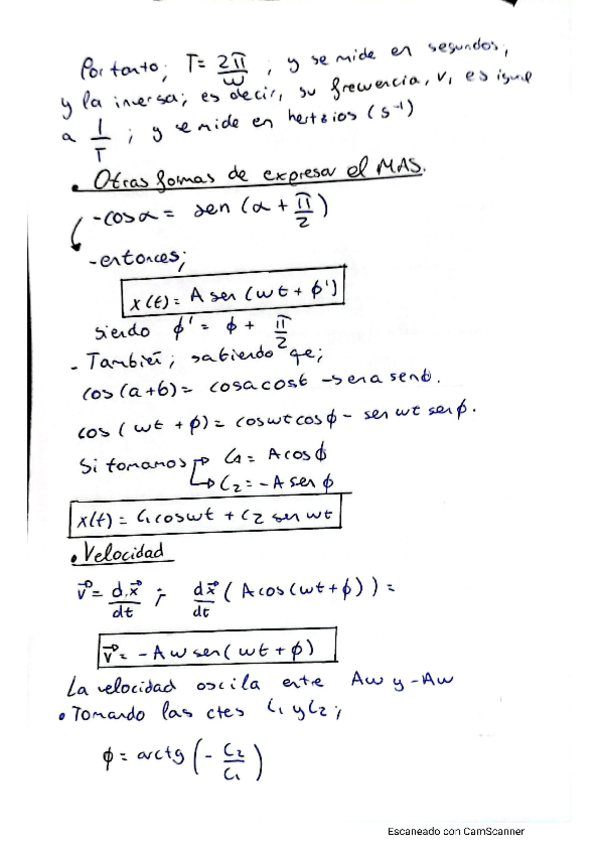 Por tanto; T= 2π/ω ; y se mide en segundos,
y la inversa; es decir, su frecuencia, ν, es igual
a 1/T ; y se mide en hertzios (s⁻¹)
• Otras formas de expresar el MAS.
- cosα = sen (α + π/2)
- entonces;
x(t) = A sen (ωt + φ')
siendo φ' = φ + π/2
- También; sabiendo qe;
cos(a+b) = cosa cosb - sena senb.
cos( ωt + φ) = cosωt cosφ - sen ωt senφ.
Si tomamos → C₁ = A cosφ
→ C₂ = -A senφ
x(t) = C₁ cosωt + C₂ sen ωt
• Velocidad
v⃗ = dx⃗/dt ; dx⃗/dt ( A cos(ωt + φ)) =
v⃗ = -Aω sen( ωt + φ)
La velocidad oscila entre Aω y -Aω
• Tomando las ctes C₁ y C₂;
φ = arctg (- C₂/C₁)
Escaneado con CamScanner